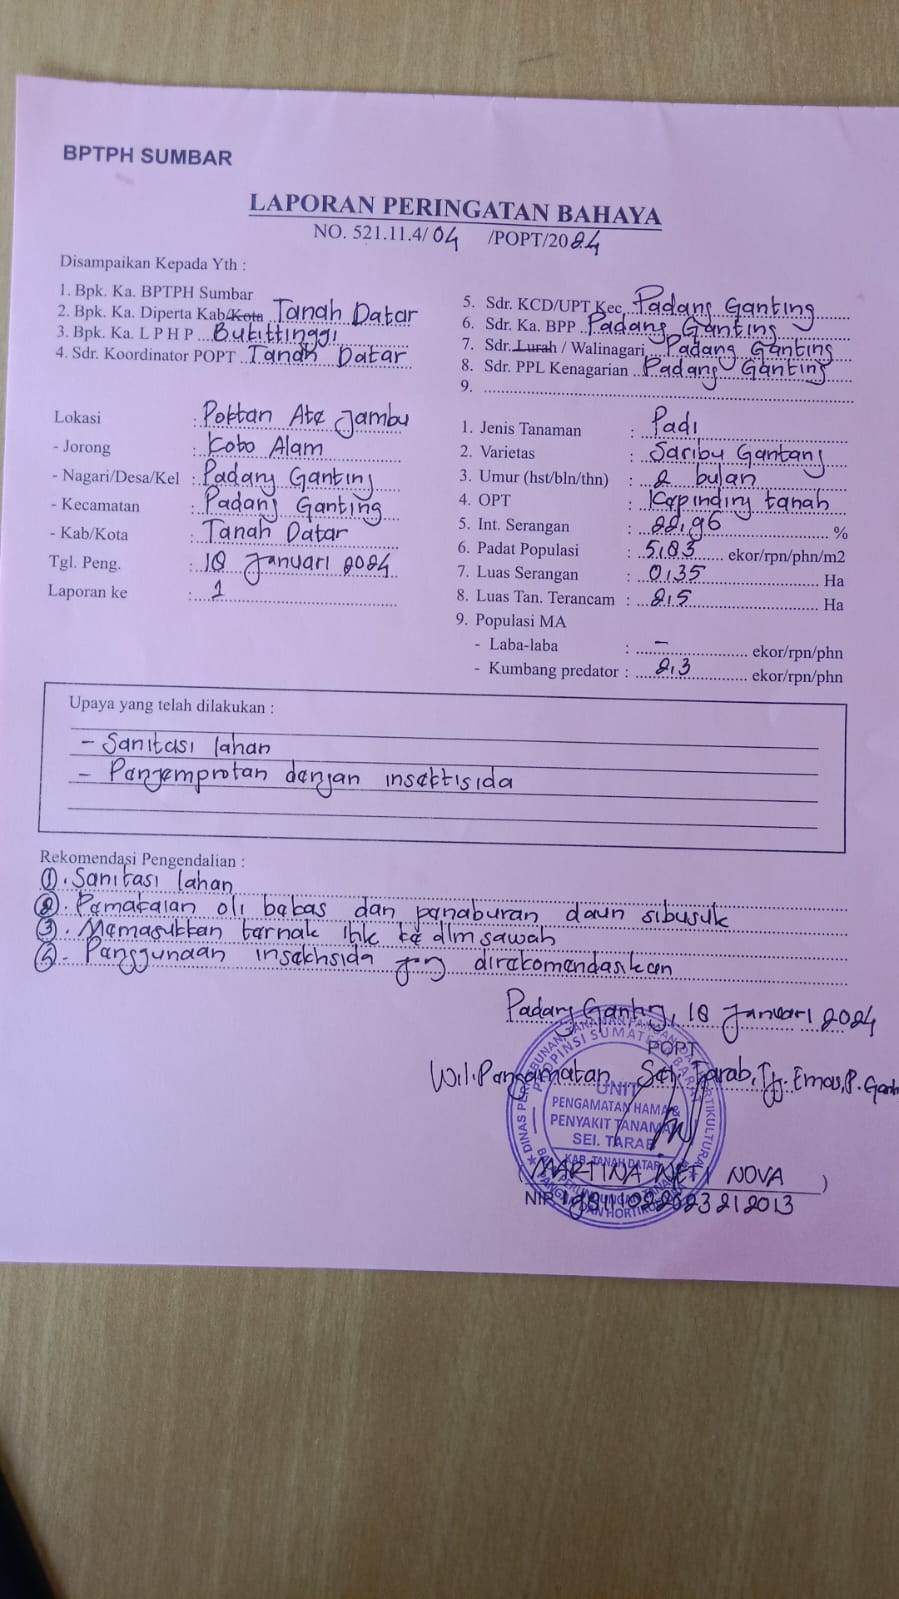 BPTPH SUMBAR
LAPORAN PERINGATAN BAHAYA
NO. 521.11.4/ 04 /POPT/2024
Disampaikan Kepada Yth :
1. Bpk. Ka. BPTPH Sumbar
2. Bpk. Ka. Diperta Kab/Kota Tanah Datar
3. Bpk. Ka. L P H P Bukittinggi
4. Sdr. Koordinator POPT Tanah Datar
5. Sdr. KCD/UPT Kec Padang Ganting
6. Sdr. Ka. BPP Padang Ganting
7. Sdr. Lurah / Walinagari Padang Ganting
8. Sdr. PPL Kenagarian Padang Ganting
9.
Lokasi : Poktan Ate Jambu
- Jorong : Koto Alam
- Nagari/Desa/Kel : Padang Ganting
- Kecamatan : Padang Ganting
- Kab/Kota : Tanah Datar
Tgl. Peng. : 18 Januari 2024
Laporan ke : 1
1. Jenis Tanaman : Padi
2. Varietas : Saribu Gantang
3. Umur (hst/bln/thn) : 2 bulan
4. OPT : Kepinding tanah
5. Int. Serangan : 22,96 %
6. Padat Populasi : 5,83 ekor/rpn/phn/m2
7. Luas Serangan : 0,35 Ha
8. Luas Tan. Terancam : 2,5 Ha
9. Populasi MA
- Laba-laba : - ekor/rpn/phn
- Kumbang predator : 2,3 ekor/rpn/phn
Upaya yang telah dilakukan :
- Sanitasi lahan
- Penyemprotan dengan insektisida
Rekomendasi Pengendalian :
1. Sanitasi lahan
2. Pemakaian oli bekas dan penaburan daun sibusuk
3. Memasukkan ternak itik ke dlm sawah
4. Penggunaan insektisida yng direkomendasikan
Padang Ganting, 18 Januari 2024
POPT
Wil. Pengamatan Sei. Tarab, Tj. Emas, P. Gant
UNIT
PENGAMATAN HAMA &
PENYAKIT TANAMA
SEI. TARAB
KAB. TANAH DATAR
(MARTINA NETI NOVA)